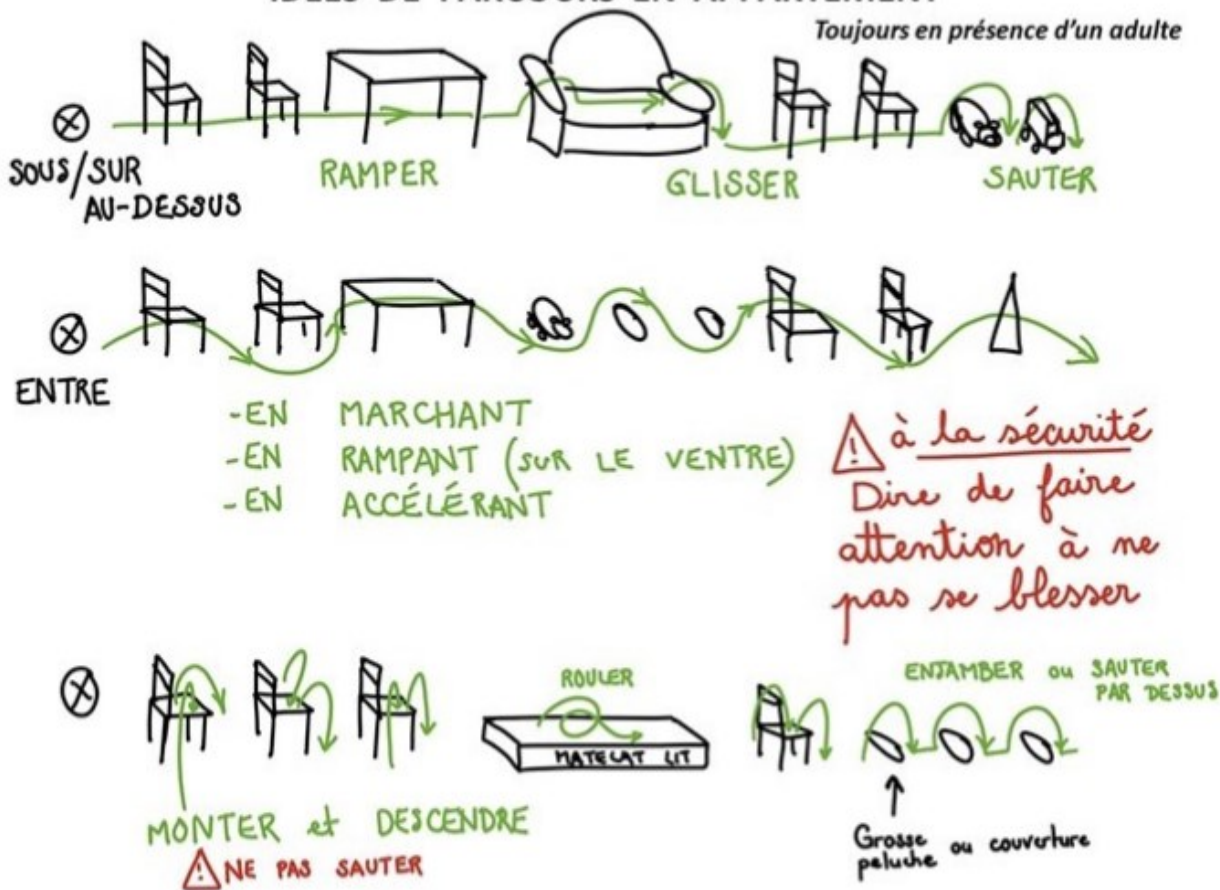 IDÉES DE PARCOURS EN APPARTEMENT
Toujours en présence d'un adulte
SOUS/SUR
AU-DESSUS
RAMPER
GLISSER
SAUTER
ENTRE
-EN MARCHANT
-EN RAMPANT (SUR LE VENTRE)
-EN ACCÉLÉRANT
⚠ à la sécurité
Dire de faire
attention à ne
pas se blesser
ROULER
MATELAT LIT
ENJAMBER ou SAUTER
PAR DESSUS
MONTER et DESCENDRE
⚠ NE PAS SAUTER
Grosse
peluche ou couverture